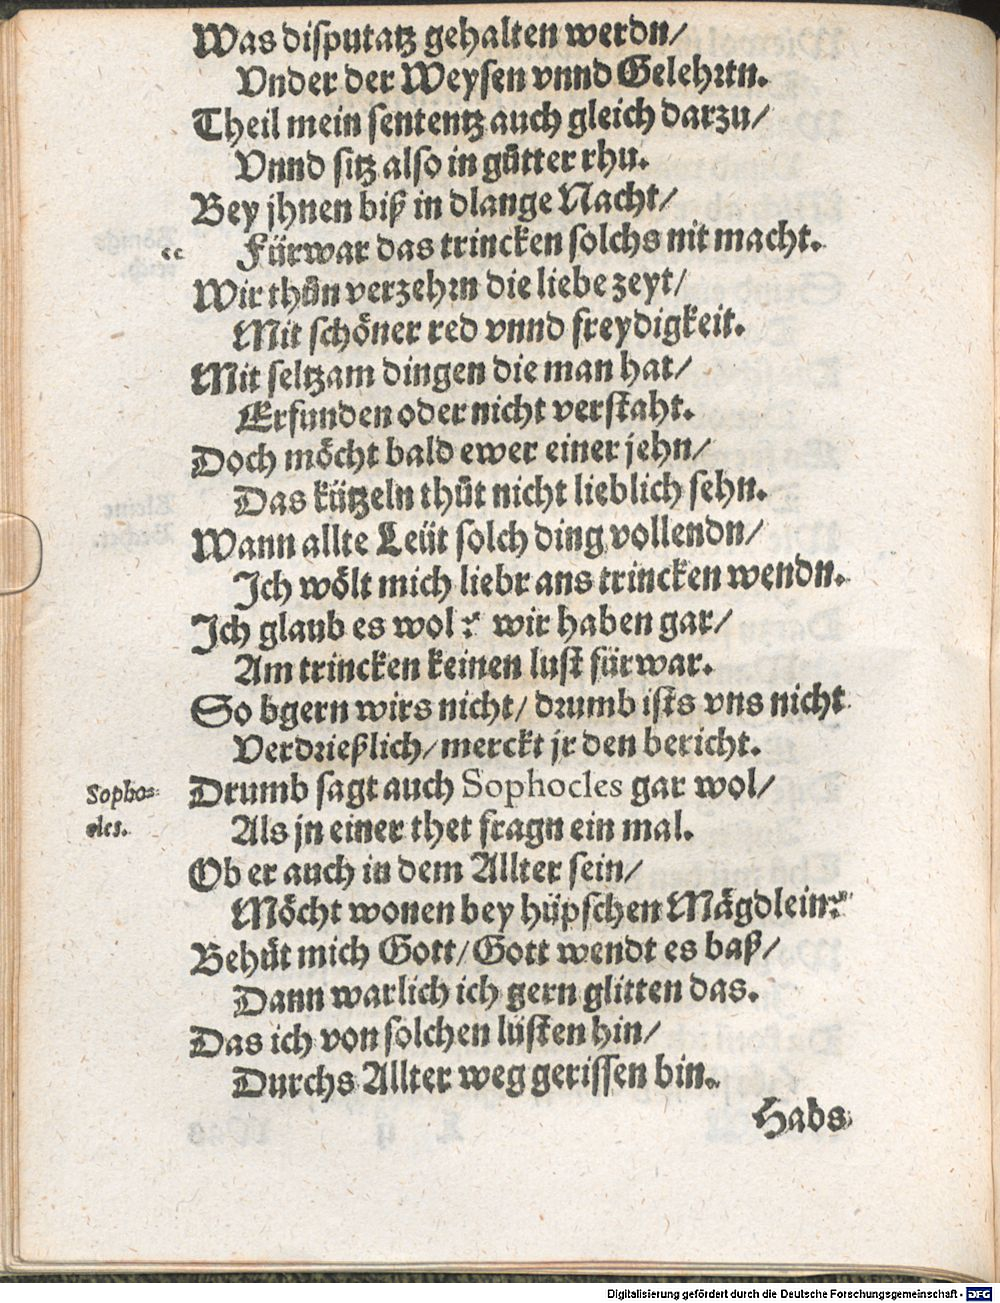 Was disputatz gehalten werdn/
Vnder der Weysen vnnd Gelehrtn.
Theil mein sententz auch gleich darzu/
Vnnd sitz also in gůtter rhu.
Bey jhnen biß in dlange Nacht/
“ Fürwar das trincken solchs nit macht.
Wir thůn verzehrn die liebe zeyt/
Mit schöner red vnnd freydigkeit.
Mit seltzam dingen die man hat/
Erfunden oder nicht verstaht.
Doch möcht bald ewer einer jehn/
Das kützeln thůt nicht lieblich sehn.
Wann allte Leüt solch ding vollendn/
Ich wölt mich liebr ans trincken wendn.
Ich glaub es wol? wir haben gar/
Am trincken keinen lust fürwar.
So bgern wirs nicht/ drumb ists vns nicht
Verdrießlich/ merckt jr den bericht.
Sopho=
cles.
Drumb sagt auch Sophocles gar wol/
Als jn einer thet fragn ein mal.
Ob er auch in dem Allter sein/
Möcht wonen bey hüpschen Mägdlein?
Behůt mich Gott/ Gott wendt es baß/
Dann warlich ich gern glitten das.
Das ich von solchen lüsten hin/
Durchs Allter weg gerissen bin.
Habs
Digitalisierung gefördert durch die Deutsche Forschungsgemeinschaft - DFG